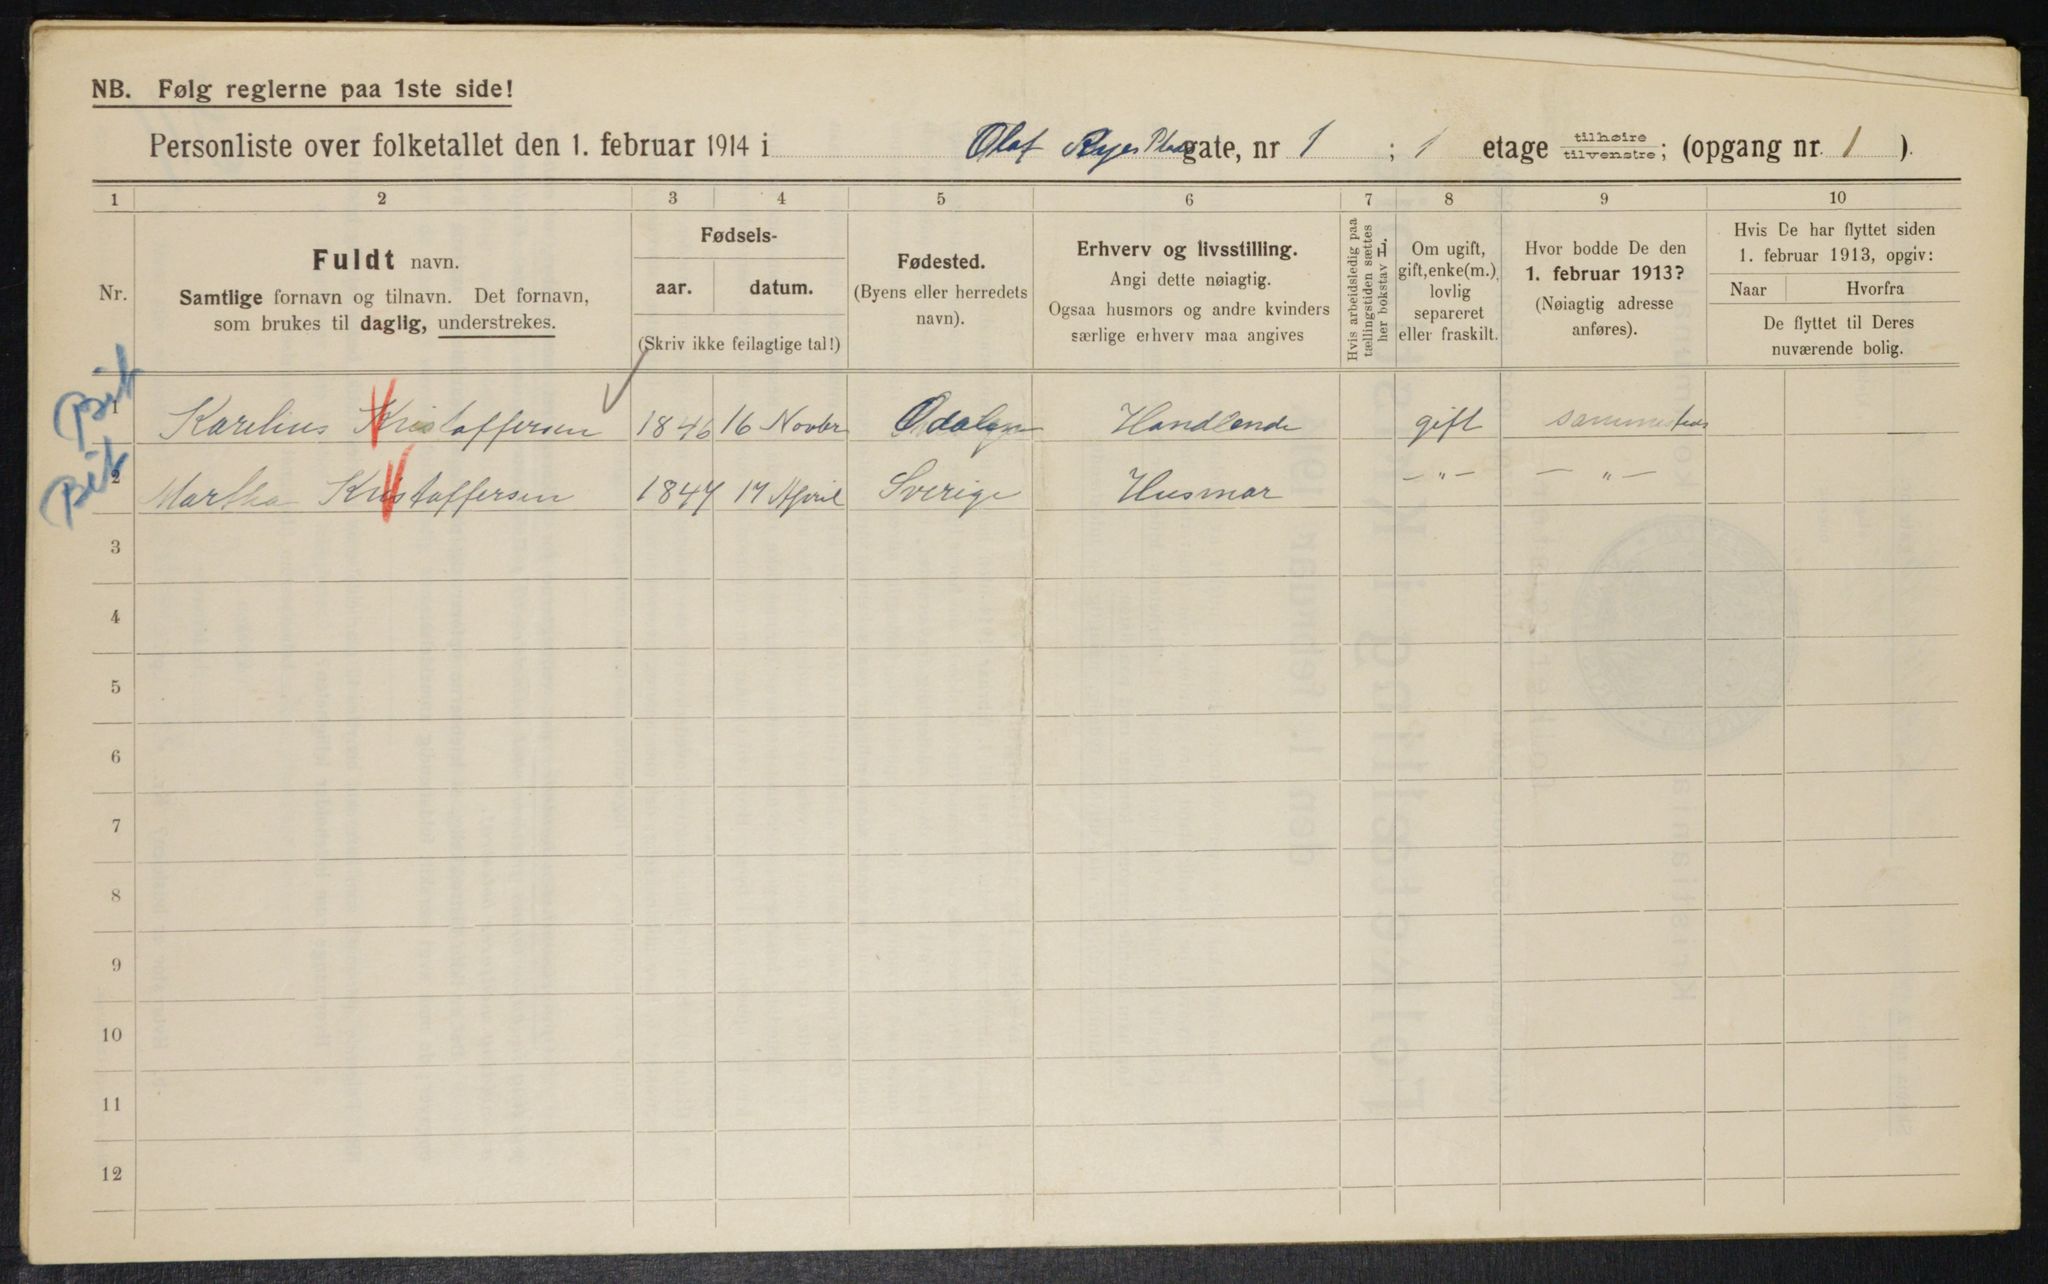 NB. Følg reglerne paa 1ste side!
Personliste over folketallet den 1. februar 1914 i Olaf Ryes Plads gate, nr 1 ; 1 etage tilhøire tilvenstre; (opgang nr. 1 ).
1 2 3 4 5 6 7 8 9 10
Nr.
Fuldt navn.
Samtlige fornavn og tilnavn. Det fornavn,
som brukes til daglig, understrekes.
Fødsels-
aar. datum.
(Skriv ikke feilagtige tal!)
Fødested.
(Byens eller herredets
navn).
Erhverv og livsstilling.
Angi dette nøiagtig.
Ogsaa husmors og andre kvinders
særlige erhverv maa angives
Hvis arbeidsledig paa
tællingstiden sættes
her bokstav L.
Om ugift,
gift, enke(m.),
lovlig
separeret
eller fraskilt.
Hvor bodde De den
1. februar 1913?
(Nøiagtig adresse
anføres).
Hvis De har flyttet siden
1. februar 1913, opgiv:
Naar Hvorfra
De flyttet til Deres
nuværende bolig.
1 Karelius Kristoffersen 1846 16 Novbr Odalen Handlende gift sammesteds
2 Martha Kristoffersen 1847 17 April Sverige Husmor — „ — — „ —
3
4
5
6
7
8
9
10
11
12